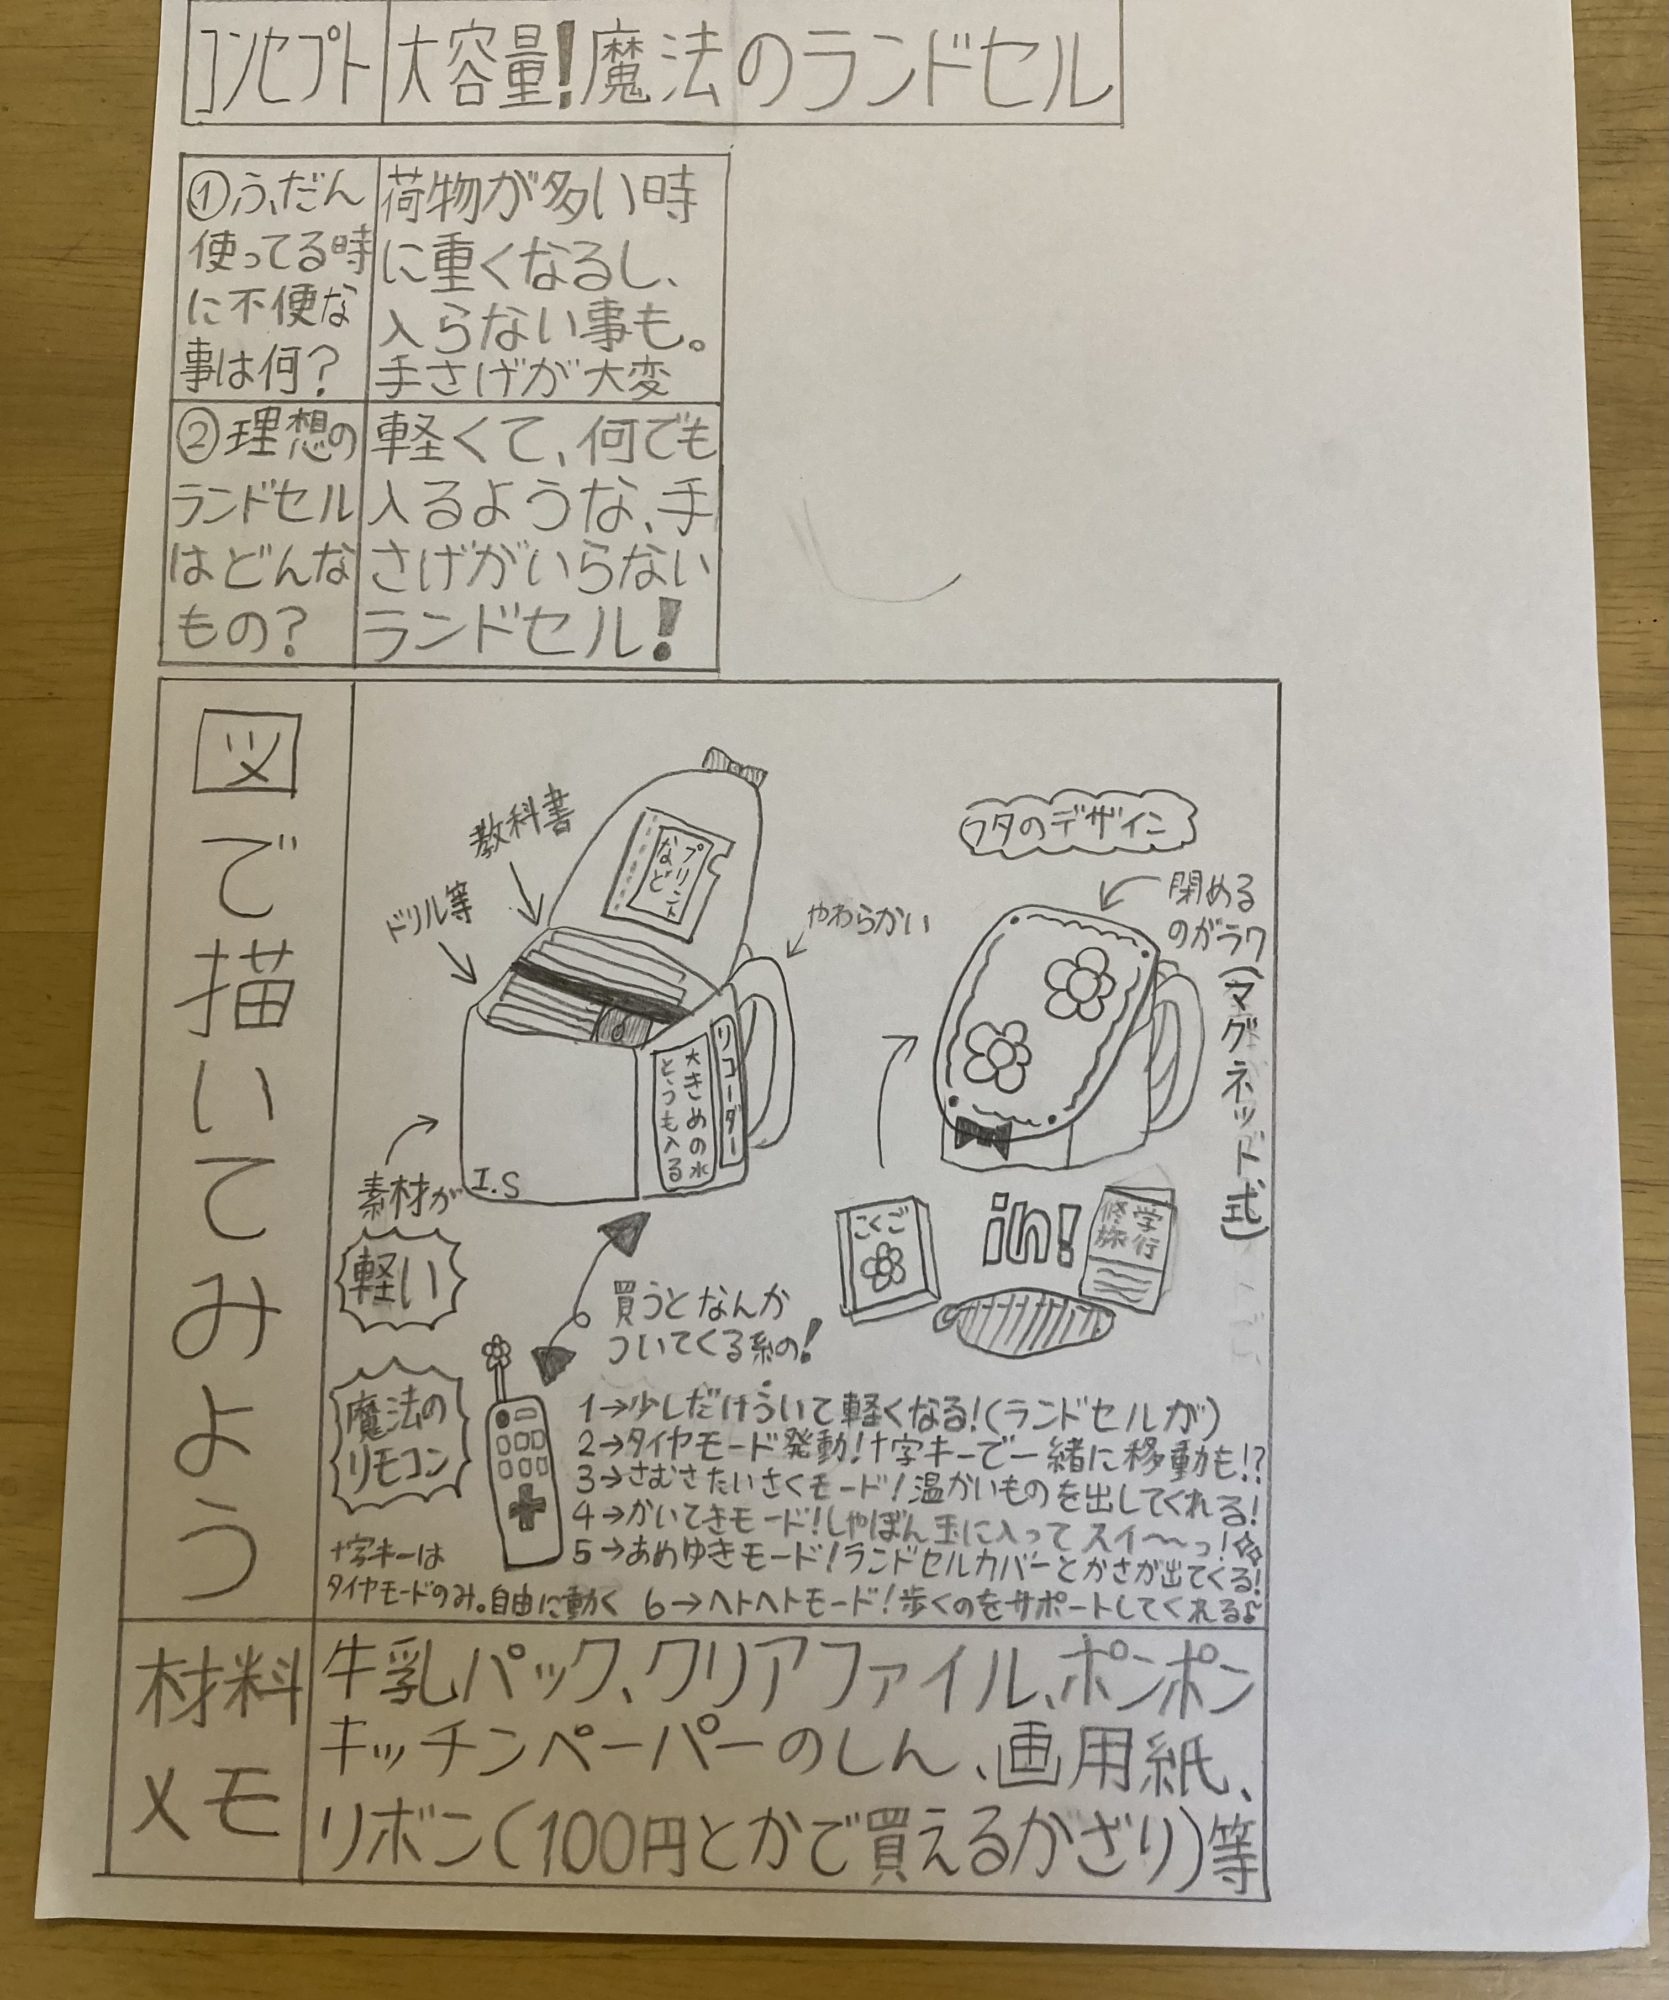 コンセプト
大容量!魔法のランドセル
①ふだん
使ってる時
に不便な
事は何?
荷物が多い時
に重くなるし、
入らない事も。
手さげが大変
②理想の
ランドセル
はどんな
もの?
軽くて、何でも
入るような、手
さげがいらない
ランドセル!
図で描いてみよう
教科書
ドリル等
プリント
など
やわらかい
リコーダー
大きめの水
とうも入る
I.S
素材が
軽い
フタのデザイン
閉める
のがラク
(マグネット式)
こくご
in!
修学
旅行
買うとなんか
ついてくる系の!
魔法の
リモコン
十字キーは
タイヤモードのみ。自由に動く
1→少しだけういて軽くなる!(ランドセルが)
2→タイヤモード発動!十字キーで一緒に移動も!?
3→さむさたいさくモード!温かいものを出してくれる!
4→かいてきモード!しゃぼん玉に入ってスイ〜〜っ!
5→あめゆきモード!ランドセルカバーとかさが出てくる!
6→ヘトヘトモード!歩くのをサポートしてくれる♪
材料
メモ
牛乳パック、クリアファイル、ポンポン
キッチンペーパーのしん、画用紙、
リボン(100円とかで買えるかざり)等